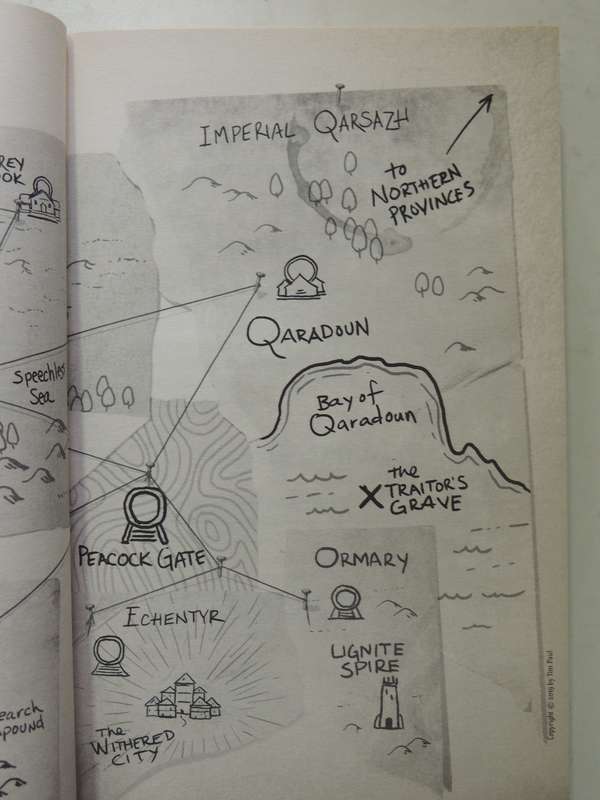 IMPERIAL QARSAZH
to
NORTHERN
PROVINCES
REY
OOK
QARADOUN
Speechless
Sea
Bay of
Qaradoun
the
TRAITOR'S
GRAVE
PEACOCK GATE
ORMARY
ECHENTYR
LIGNITE
SPIRE
earch
pound
The
WITHERED
CITY
Copyright © 2019 by Tim Paul